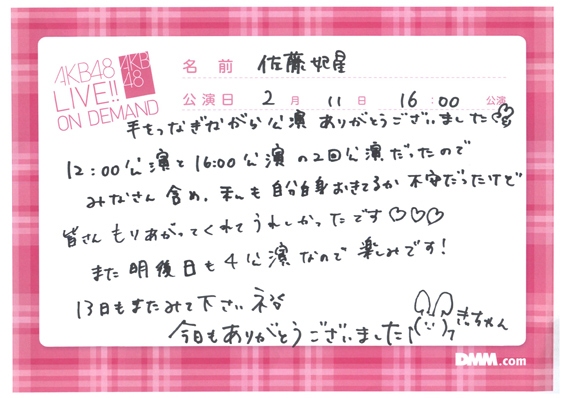 AKB48
LIVE!!
ON DEMAND
AKB
48
名前 佐藤妃星
公演日 2月 11日 16:00 公演
手をつなぎながら公演 ありがとうございました♡
12:00公演と16:00公演の2回公演だったので
みなさん含め、私も自分自身おきてるか不安だったけど
皆さんもりあがってくれてうれしかったです♡♡♡
また明後日も4公演なので楽しみです!
13日もまたみて下さいネ
今日もありがとうございました! きぃちゃん
DMM.com